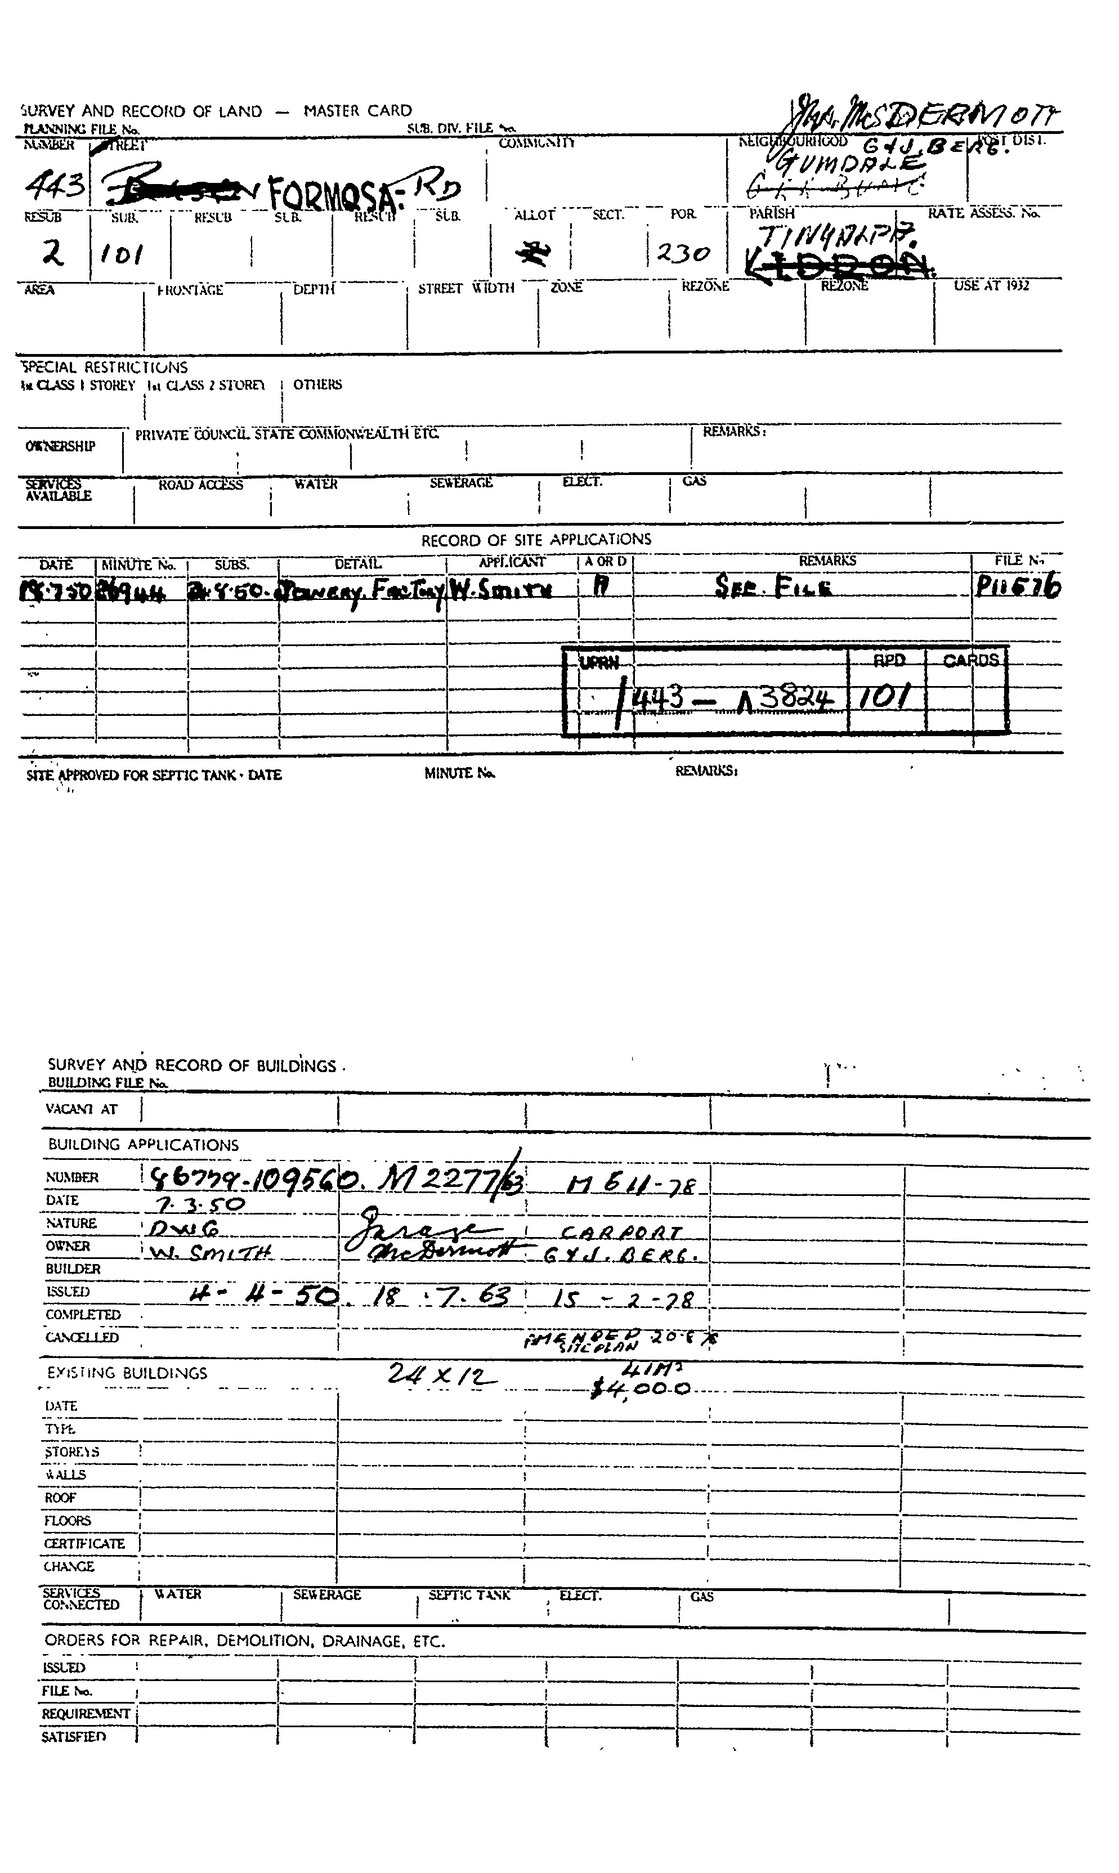 SURVEY AND RECORD OF LAND — MASTER CARD
Mrs. McDERMOTT
PLANNING FILE No. SUB. DIV. FILE No.
NUMBER STREET COMMUNITY NEIGHBOURHOOD G & J. BERG. POST DIST.
443 FORMOSA RD GUMDALE
RESUB SUB. RESUB SUB. RESUB SUB. ALLOT SECT. POR. PARISH RATE ASSESS. No.
2 101 230 TINGALPA.
KIDRON.
AREA FRONTAGE DEPTH STREET WIDTH ZONE REZONE REZONE USE AT 1932
SPECIAL RESTRICTIONS
1st CLASS 1 STOREY 1st CLASS 2 STOREY OTHERS
OWNERSHIP PRIVATE COUNCIL STATE COMMONWEALTH ETC. REMARKS:
SERVICES AVAILABLE ROAD ACCESS WATER SEWERAGE ELECT. GAS
RECORD OF SITE APPLICATIONS
DATE MINUTE No. SUBS. DETAIL APPLICANT A OR D REMARKS FILE No.
18.7.50 26944 2.8.50. Joinery. Factory W. Smith A SEE. FILE P11676
UPRN RPD CARDS
/443 — A3824 101
SITE APPROVED FOR SEPTIC TANK - DATE MINUTE No. REMARKS:
SURVEY AND RECORD OF BUILDINGS
BUILDING FILE No.
VACANT AT
BUILDING APPLICATIONS
NUMBER 86779-109560. M2277/63 M 611-78
DATE 7.3.50
NATURE DWG Garage CARPORT
OWNER W. SMITH McDermott G & J. BERG.
BUILDER
ISSUED 4-4-50. 18.7.63 15-2-78
COMPLETED
CANCELLED AMENDED SITE PLAN 20.6.78
EXISTING BUILDINGS 24 x 12 41M²
$4,000
DATE
TYPE
STOREYS
WALLS
ROOF
FLOORS
CERTIFICATE
CHANGE
SERVICES CONNECTED WATER SEWERAGE SEPTIC TANK ELECT. GAS
ORDERS FOR REPAIR, DEMOLITION, DRAINAGE, ETC.
ISSUED
FILE No.
REQUIREMENT
SATISFIED